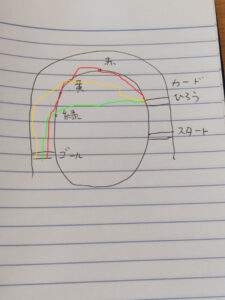 赤
黄
カード
ひろう
緑
スタート
ゴール